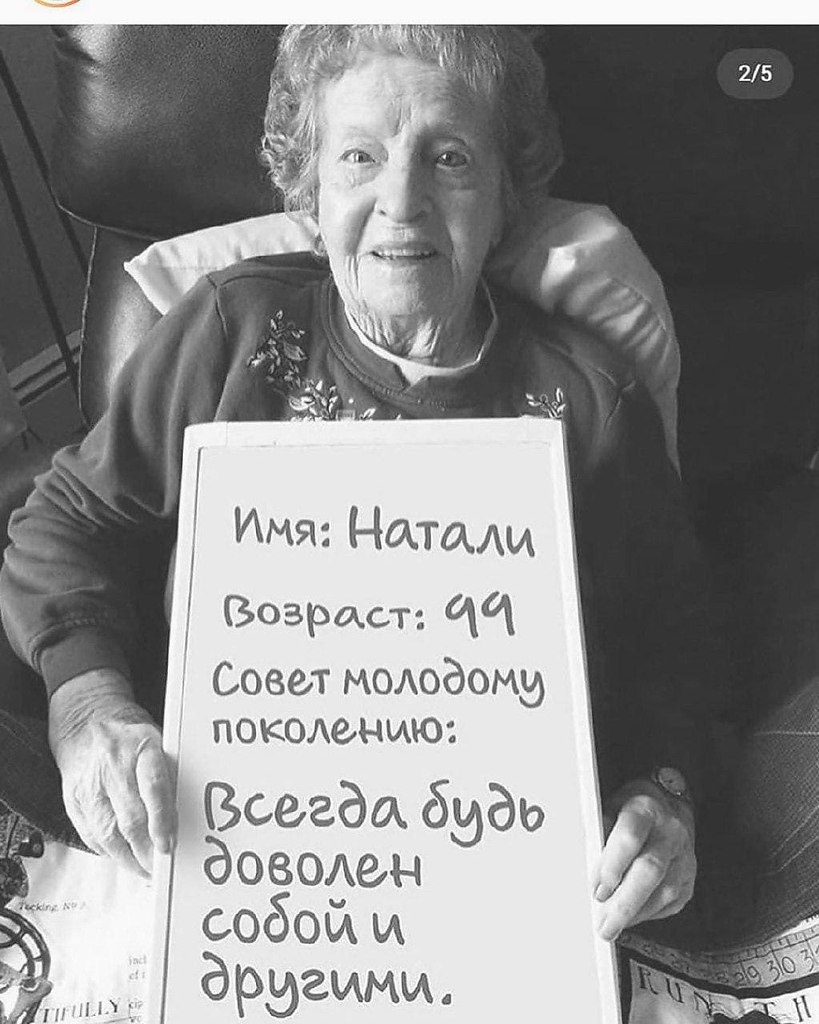 2/5
Имя: Натали
Возраст: 99
Совет молодому
поколению:
Всегда будь
доволен
собой и
другими.
TIFULLY
29 30 3
RUN
TH